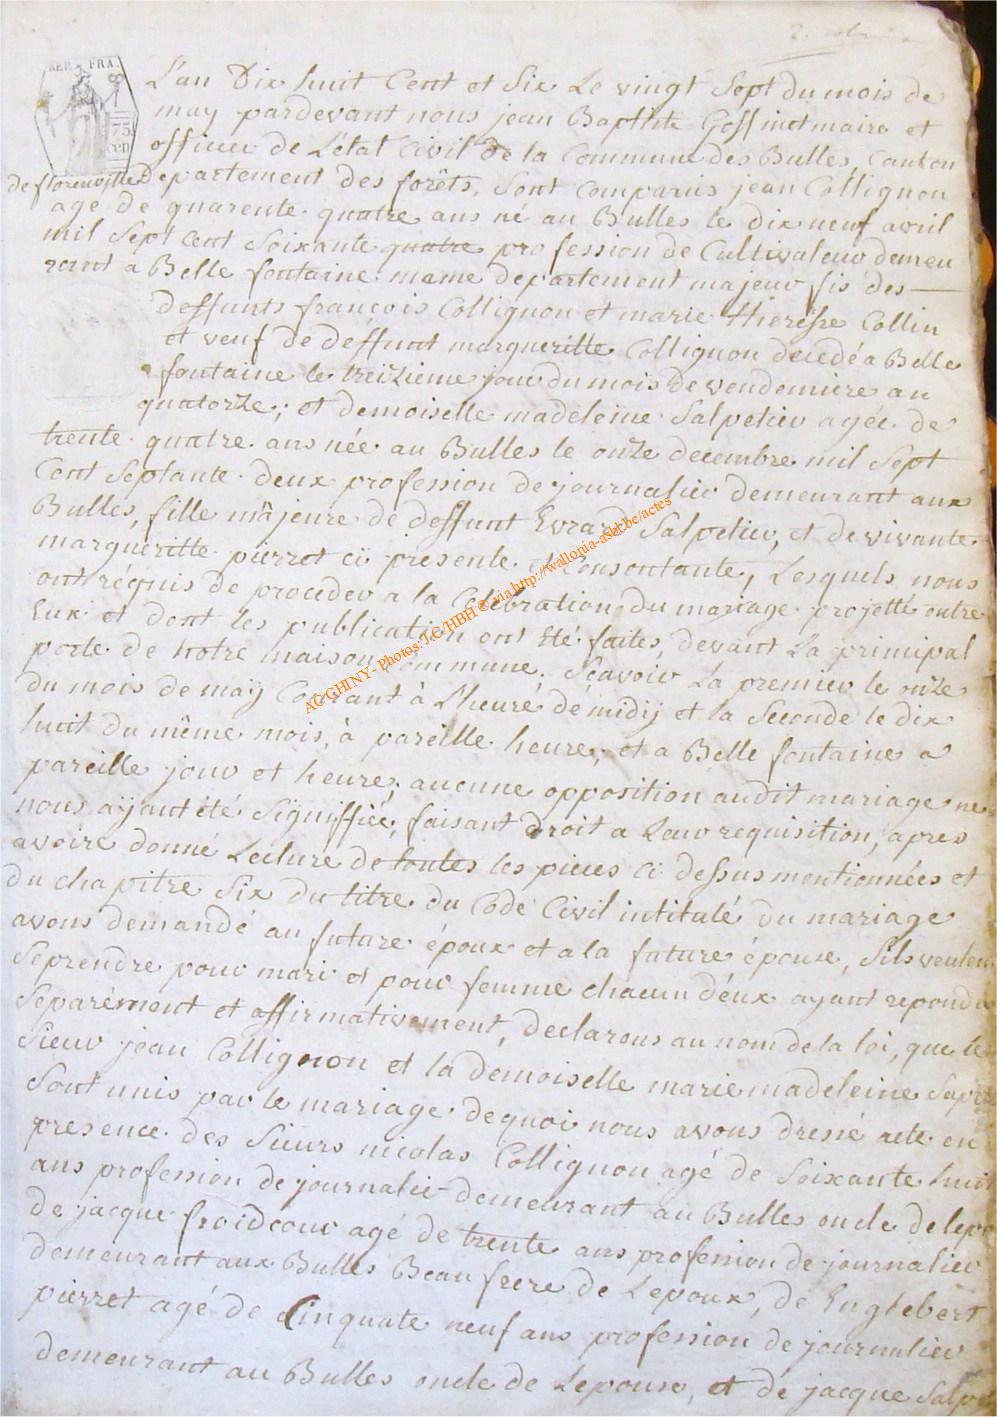 REP. FRA.
75
cen
L'an Dix huit Cent et Six Le vingt Sept du mois de
may pardevant nous jean Baptiste Goffinet maire et
officier de L'état Civil de la Commune des Bulles, Canton
de florenville Departement des forêts, Sont comparus jean Collignon
age de quarente quatre ans né au Bulles le dix neuf avril
mil Sept Cent Soixante quatre profession de Cultivateur demeu
rant a Belle fontaine mame departement majeur fis des
deffunts françois Collignon et marie theresse Collin
et veuf de deffunt margueritte Collignon decedé a Belle
fontaine le treizieme jour du mois de vendemiere an
quatorze; et demoiselle madeleine Salpetier agée de
trente quatre ans née au Bulles le onze decembre mil Sept
Cent Septante deux profession de journalier demeurant aux
Bulles, fille mâjeure de deffunt Evrard Salpetier, et de vivante
margueritte pierret ci presente et Consontante, Lesquels nous
ont réquis de proceder a la Célébration du mariage projetté entre
Eux et dont les publication ont Eté faites, devant La principal
porte de notre maison Commune. Seavoir La premier le onze
du mois de maÿ Courant à L'heure démidij et la Seconde le dix
huit du même mois, à pareille heure, et a Belle fontaine a
pareille jour et heure; aucunne opposition audit mariage ne
nous aÿant été Signiffiée; faisant droit a Leur requisition, apres
avoire donné Lecture de toutes les pieces ci dessus mentionnées et
du chapitre Six du titre du Code Civil intitulé Du mariage
avons demandé au future époux et a la future épouse, Sils veulen
Seprendre pour mari et pour femme chacun d'eux ayant repondu
Separément et affirmativement, declarons au nom de la loi, que le
Sieur jean Collignon et la demoiselle marie madeleine Sapet
Sont unis par le mariage dequoi nous avons dressé acte en
presence des Sieurs nicolas Collignon agé de Soixante huit
ans profession de journalier demeurant au Bulles oncle de lepo
de jacque froidcour agé de trente ans profession de journalier
demeurant aux Bulles Beau frere de Lepoux, de Englebert
pierret agé de Cinquate neuf ans profession de journalier
demeurant au Bulles oncle de Lepouse, et de jacque Salpe
ACGHINY- Photos: J.C/HBH ® via http://wallonia-asbl.be/actes